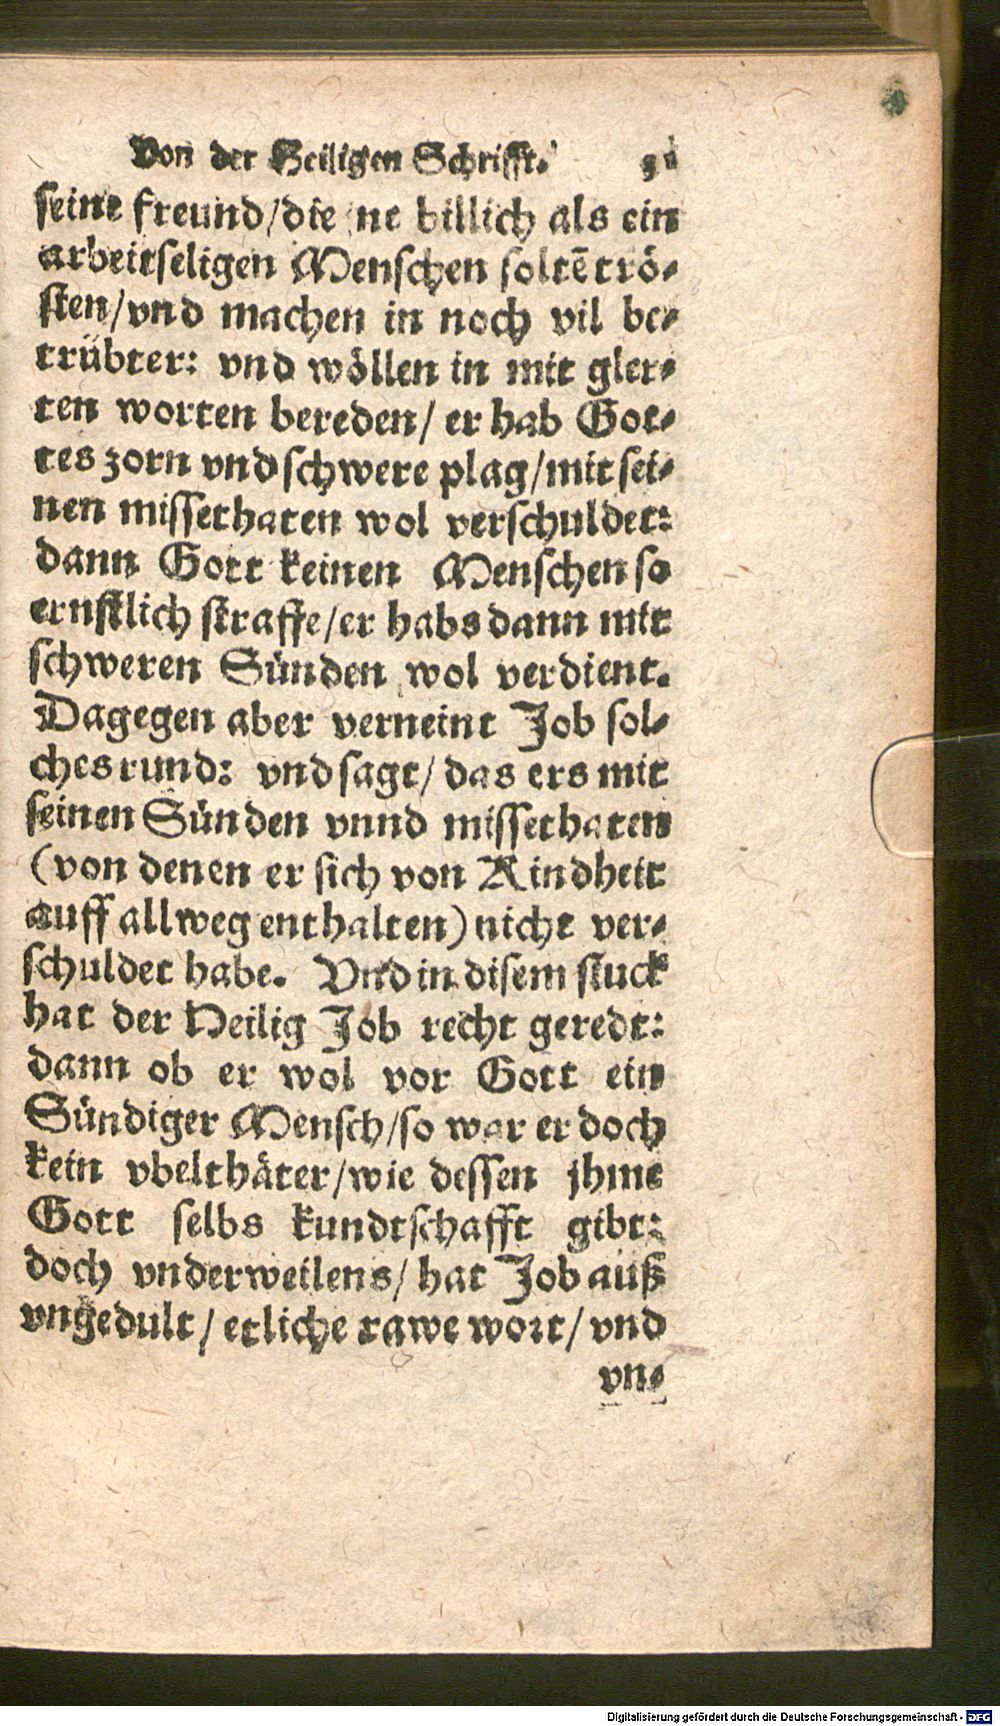 Von der Heiligen Schrifft.
seine freund/die ne billich als ein
arbeitseligen Menschen soltē trö-
sten/vnd machen in noch vil be-
trübter: vnd wöllen in mit gler-
ten worten bereden/ er hab Got-
tes zorn vnd schwere plag/mit sei-
nen missethaten wol verschuldet:
dann Gott keinen Menschen so
ernstlich straffe/er habs dann mit
schweren Sünden wol verdient.
Dagegen aber verneint Job sol-
ches rund: vnd sagt/ das ers mit
seinen Sünden vnnd missethaten
(von denen er sich von Kindheit
auff allweg enthalten) nicht ver-
schuldet habe. Vnd in disem stuck
hat der Heilig Job recht geredt:
dann ob er wol vor Gott ein
Sündiger Mensch/so war er doch
kein vbelthäter/wie dessen jhme
Gott selbs kundtschafft gibt:
doch vnderweilens/ hat Job auß
vngedult/ etliche rawe wort/ vnd
vn-
Digitalisierung gefördert durch die Deutsche Forschungsgemeinschaft - DFG